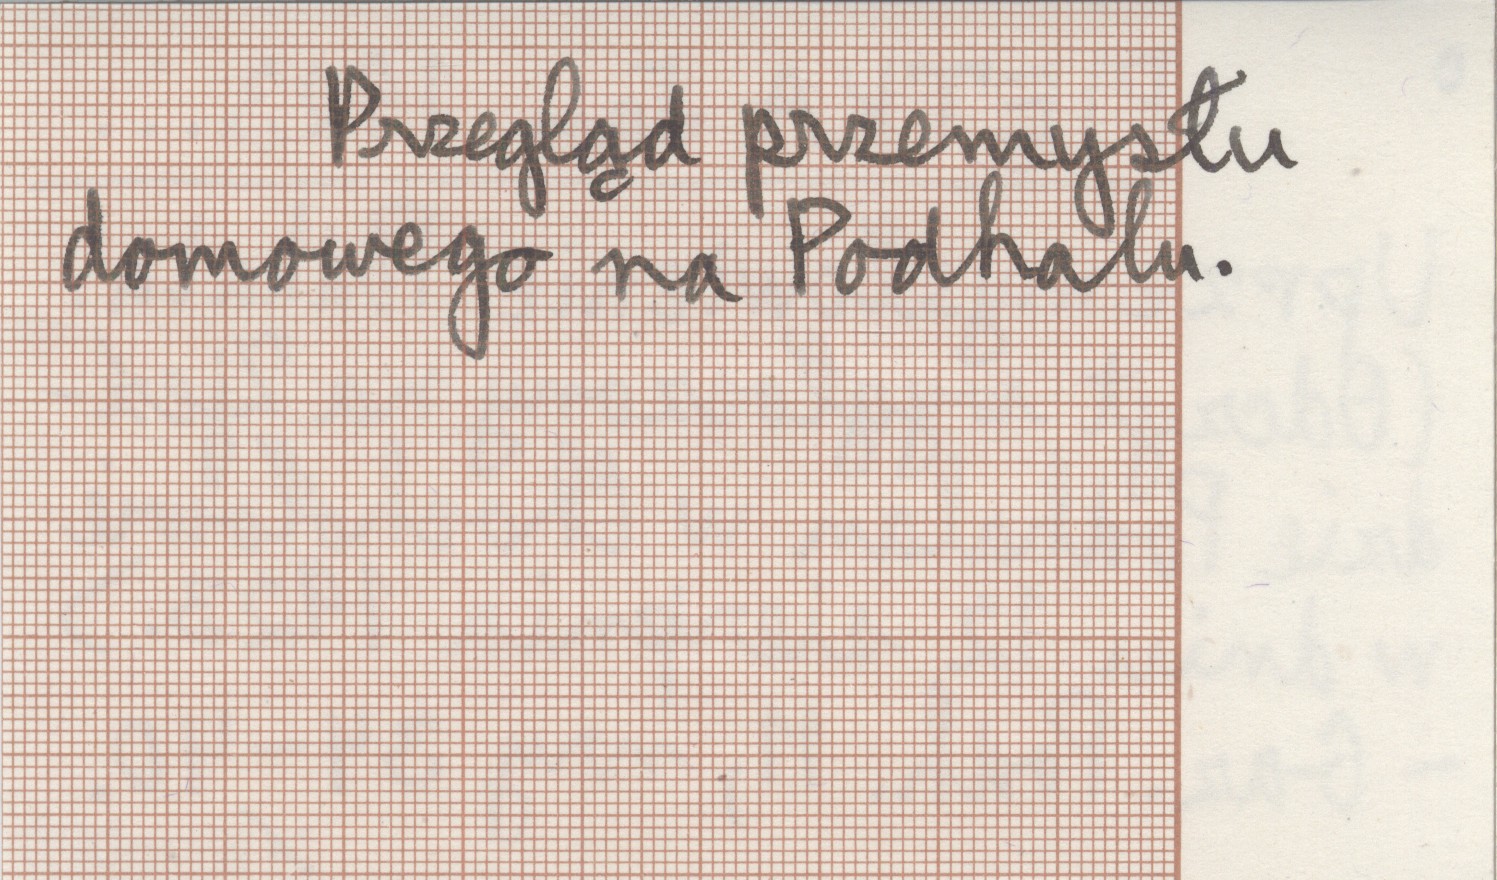 Przegląd przemysłu
domowego na Podhalu.